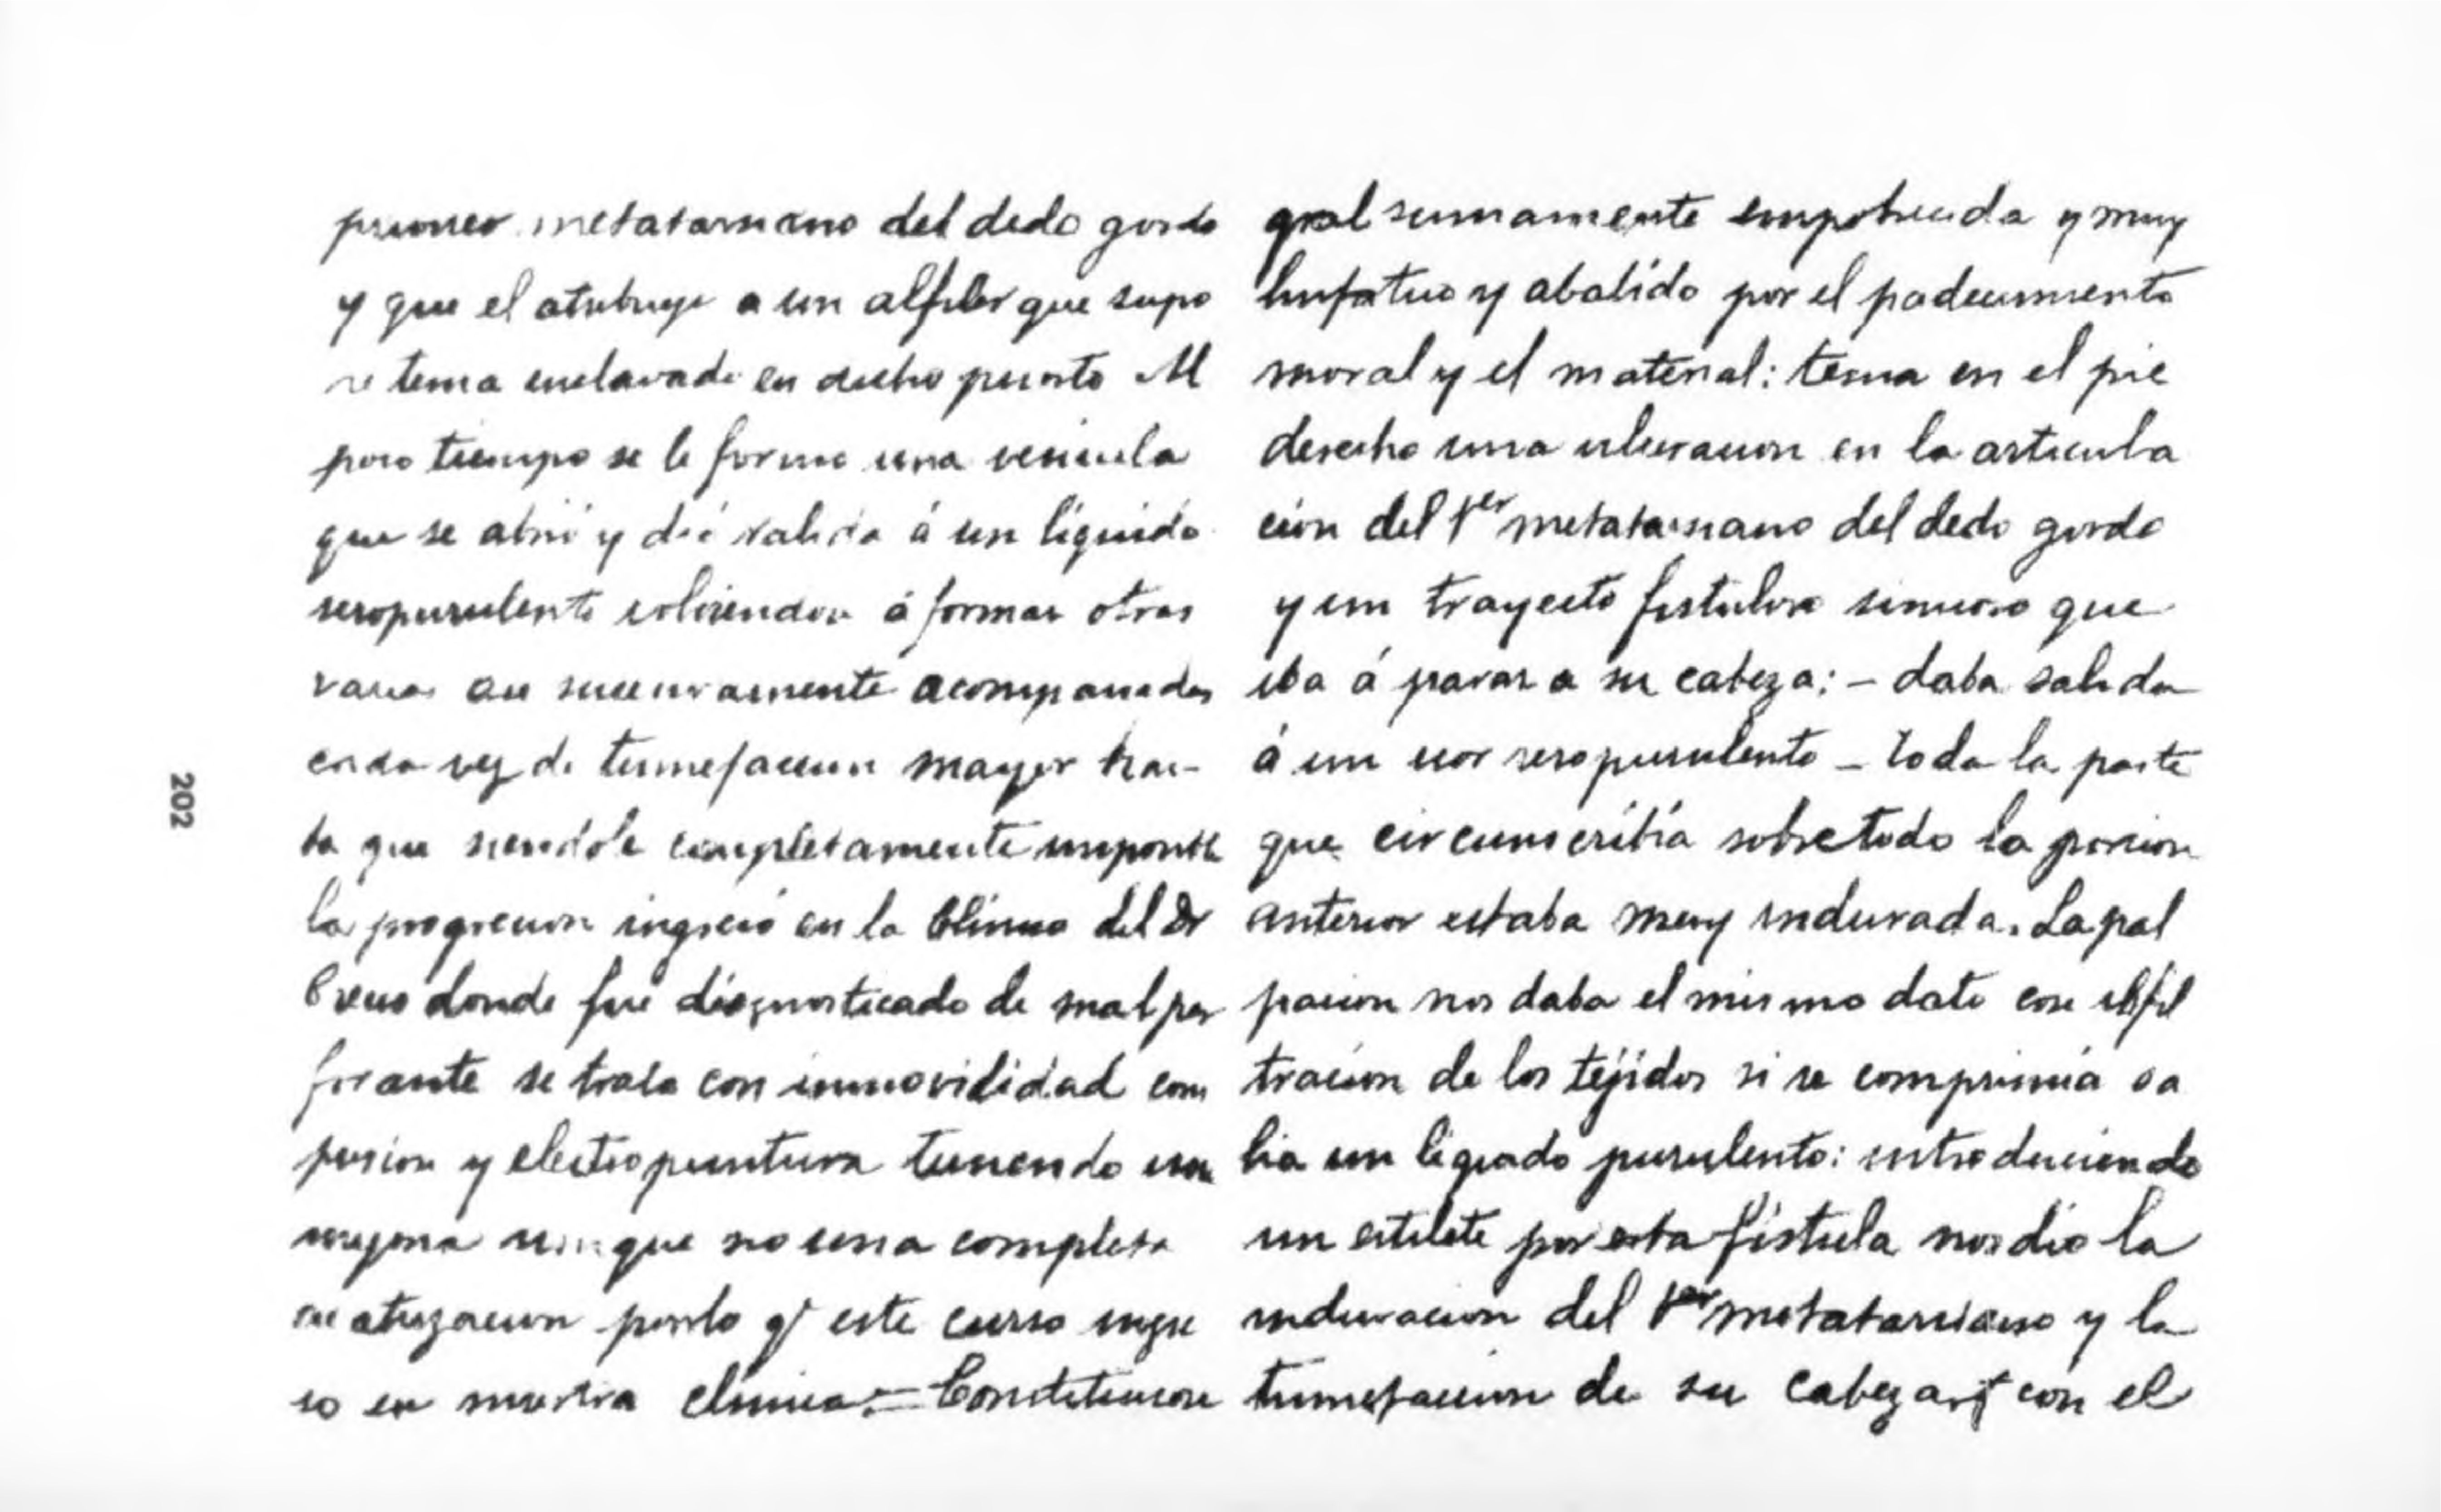 primer metatarsiano del dedo gordo
y que el atribuye a un alfiler que supo
se tenia enclavado en dicho punto Al
poco tiempo se le formo una vesicula
que se abrió y dió salida á un líquido
seropurulento volviendose á formar otras
varias sucesivamente acompanadas
cada vez de tumefaccion mayor has-
ta que siendole completamente imposible
la progresion ingresó en la Clinica del Dr
Creus donde fue diagnosticado de mal per
forante se trato con inmovilidad com
presion y electropuntura teniendo una
mejoria aunque no una completa
cicatrizacion por lo q' este curso ingre
so en nuestra clinica = Constitucion
gral sumamente empobrecida y muy
linfatico y abatido por el padecimiento
moral y el material: tenia en el pie
derecho una ulceracion en la articula
ción del 1er metatarsiano del dedo gordo
y un trayecto fistuloso sinuoso que
iba á parar a su cabeza; - daba salida
á un icor seropurulento - toda la parte
que circunscribia sobre todo la porcion
anterior estaba muy indurada. La pal
pacion nos daba el mismo dato con
tracion de los tejidos si se comprimia sa
lia un liquido purulento: introduciendo
un estilete por esta fístula nos dio la
induracion del 1er metatarsiano y la
tumefaccion de su cabeza con el
202